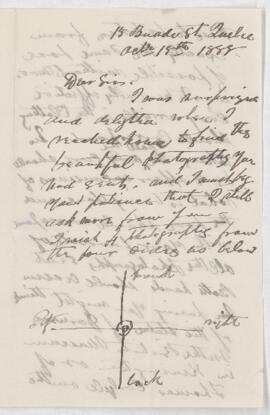 15 Buade St. Quebec
Oct 18th 1888
Dear Sir.
I was surprised
and delighted when I
reached home to find the
beautiful Photographs you
had sent, and I
your patience that I still
ask more from you
I wish 4 Photographs from
the four sides as below
front
Left right
back